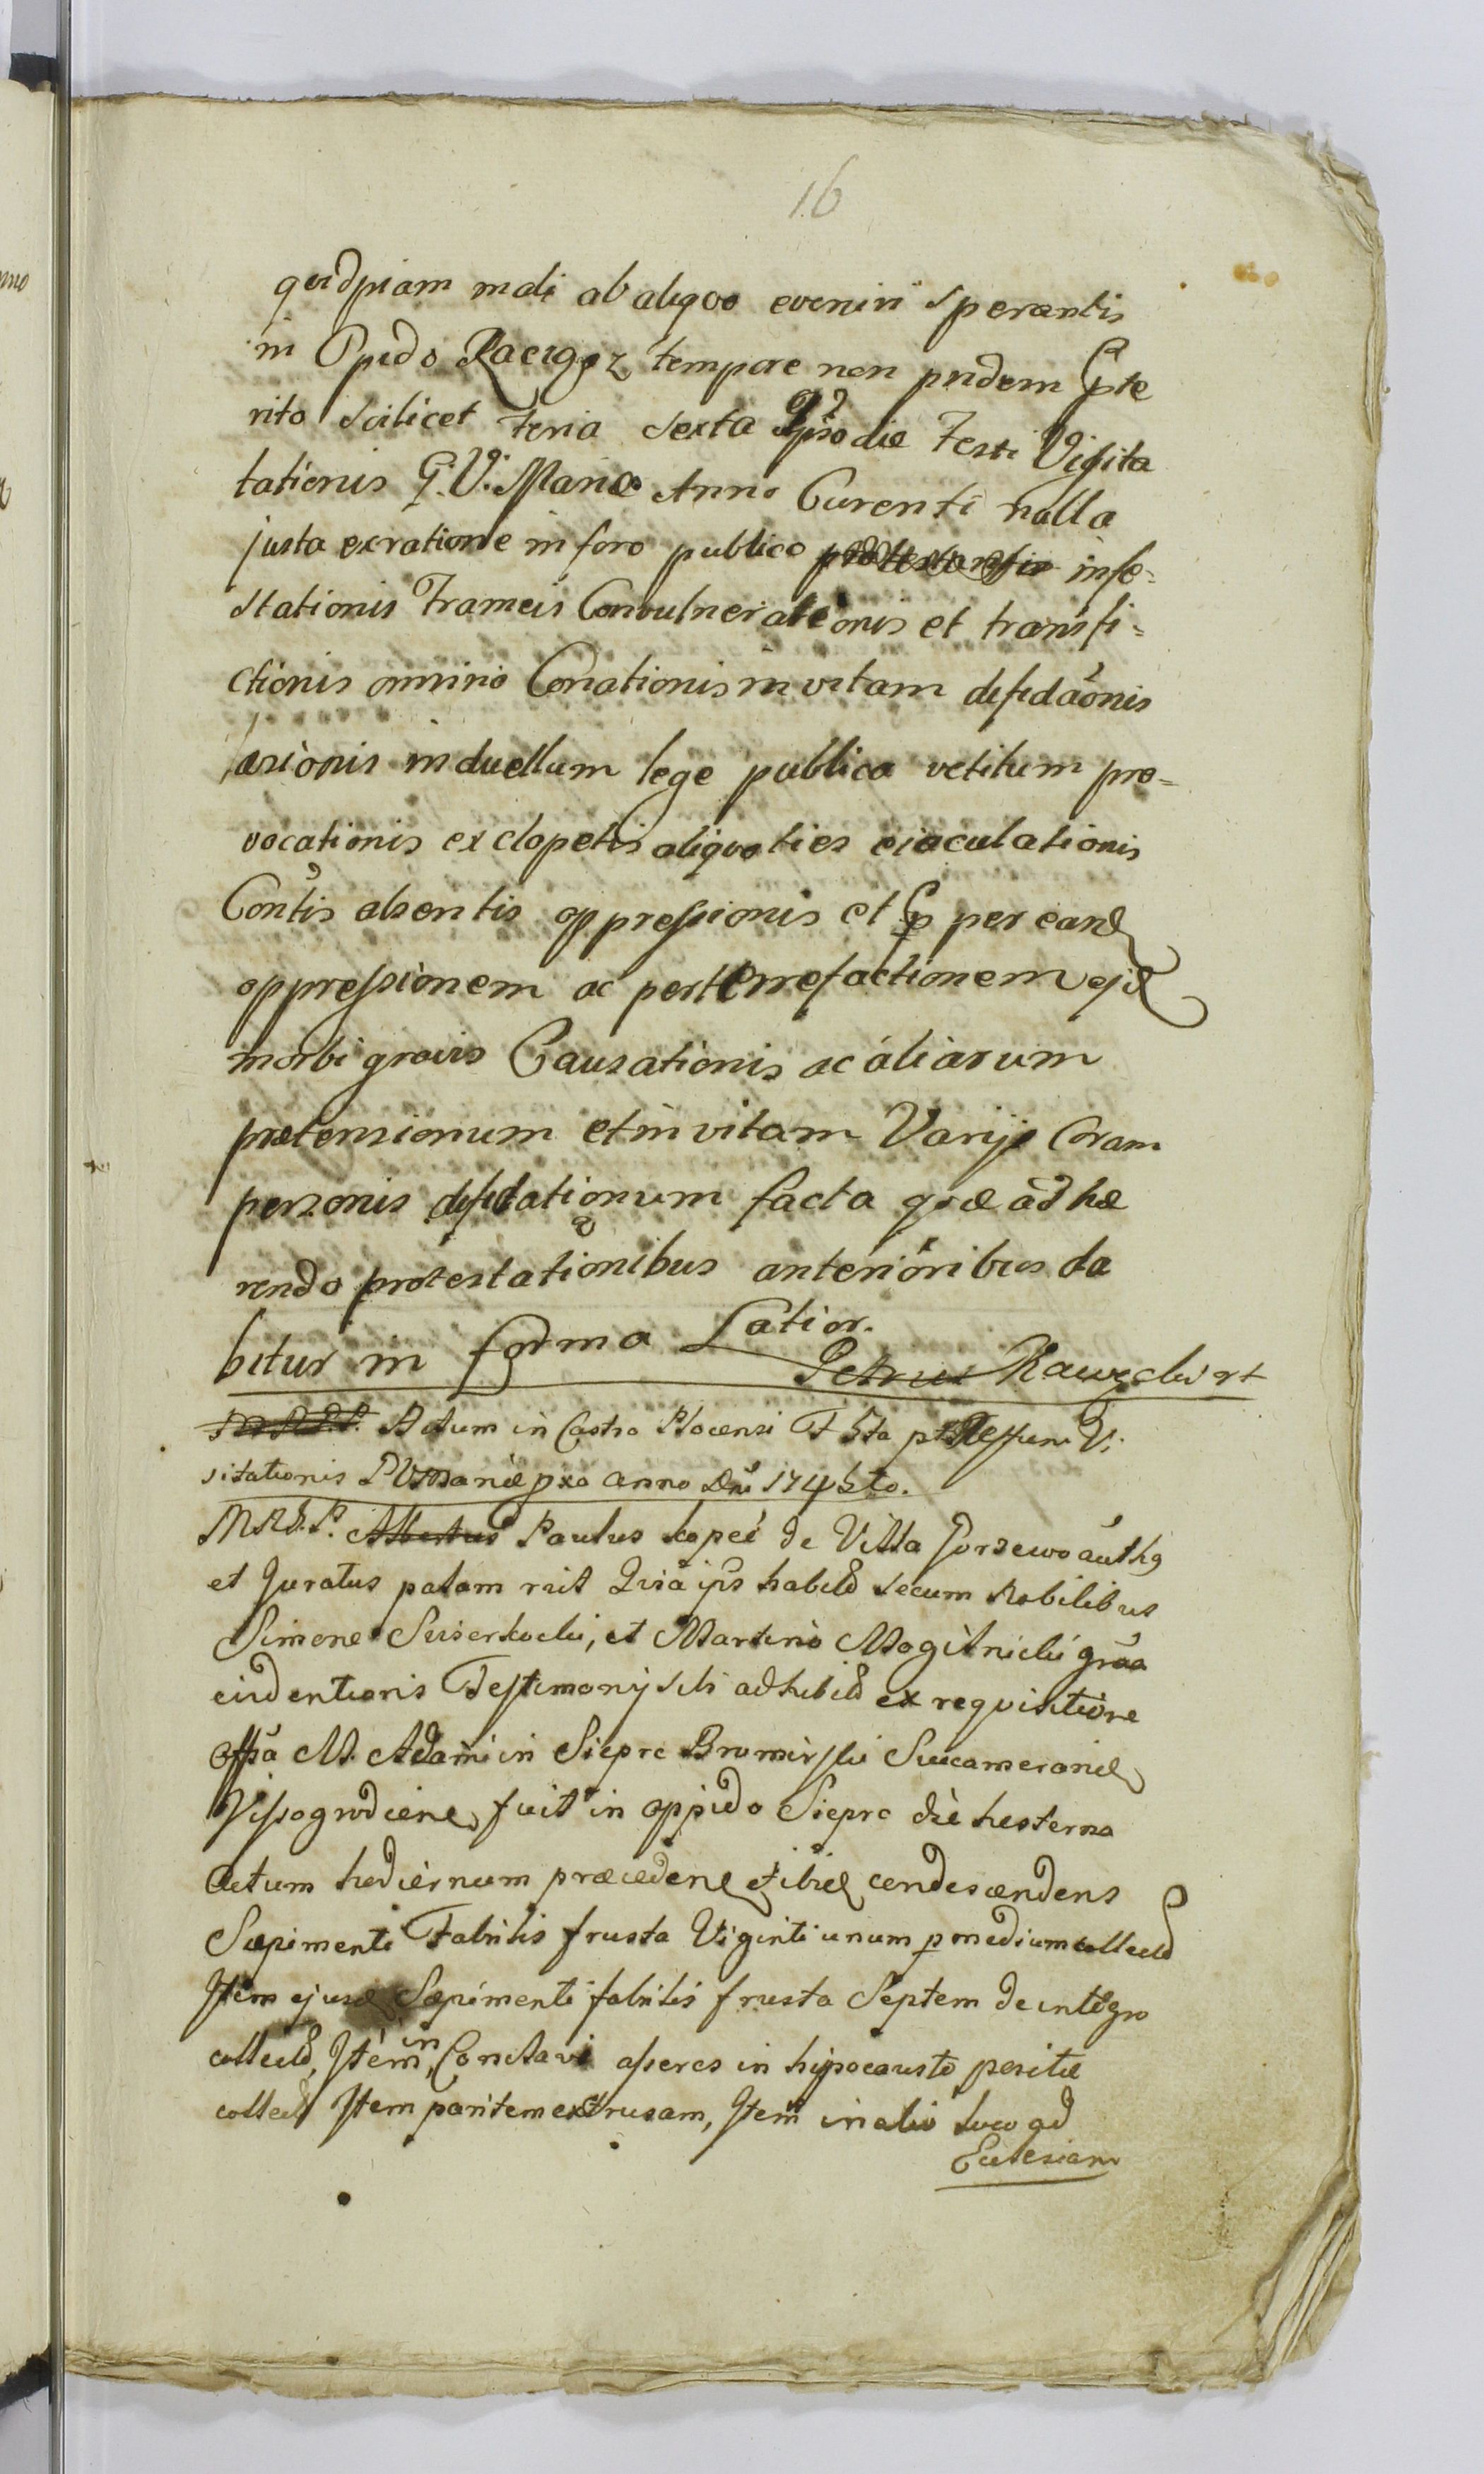 16
quidpiam mali ab aliquo eveniri sperantis
in Opido Raciąz tempore non pridem præte
rito scilicet Feria sexta ipso die Festi Visita
tationis B. V. Mariæ Anno Curenti nulla
justa exratione in foro publico infe-
stationis Frameis Convulnerationis et transfi-
ctionis omnino Conationis in vitam difidãonis
in duellum lege publica vetitum pro-
vocationis ex clopetis aliquoties eiaculationis
Contis absentis oppressionis et per eand
oppressionem ac perterrefactionem ejd
morbi gravis Causationis ac aliarum
prætensionum et in vitam Varijs Coram
personis difidationum facta quæ adhæ
rendo protestationibus anterioribus da
bitur in forma Latior.
Petrus Rawęcki
Actum in Castro Plocensi F 5ta pt Festum Vi
sitationis BVMariæ pxa anno Dni 1745to.
Paulus Kopeć de Villa Gorzewo authq
et Juratus palam rcit Quia ips habitd secum Nobilibus
Simone et Martino Mogilnicki grãa
evidentioris Testimonij sibi adhibitd ex requisitione
M. Adami in Sieprc Bromirski Succamerarid
Vissogrodiens fuit in oppido Sieprc die hesterna
actum hodiernum præcedene et ibid condescendens
Sæpimenti Fabrilis frusta Viginti unum p medium collisd
Item ejusd Sæpimenti fabrilis frusta Septem de integro
collisd, Item in Conclavi asseres in hipocausto positæ
collisd Item paritem extrusam, Item in alio loco ad
Eclesiam